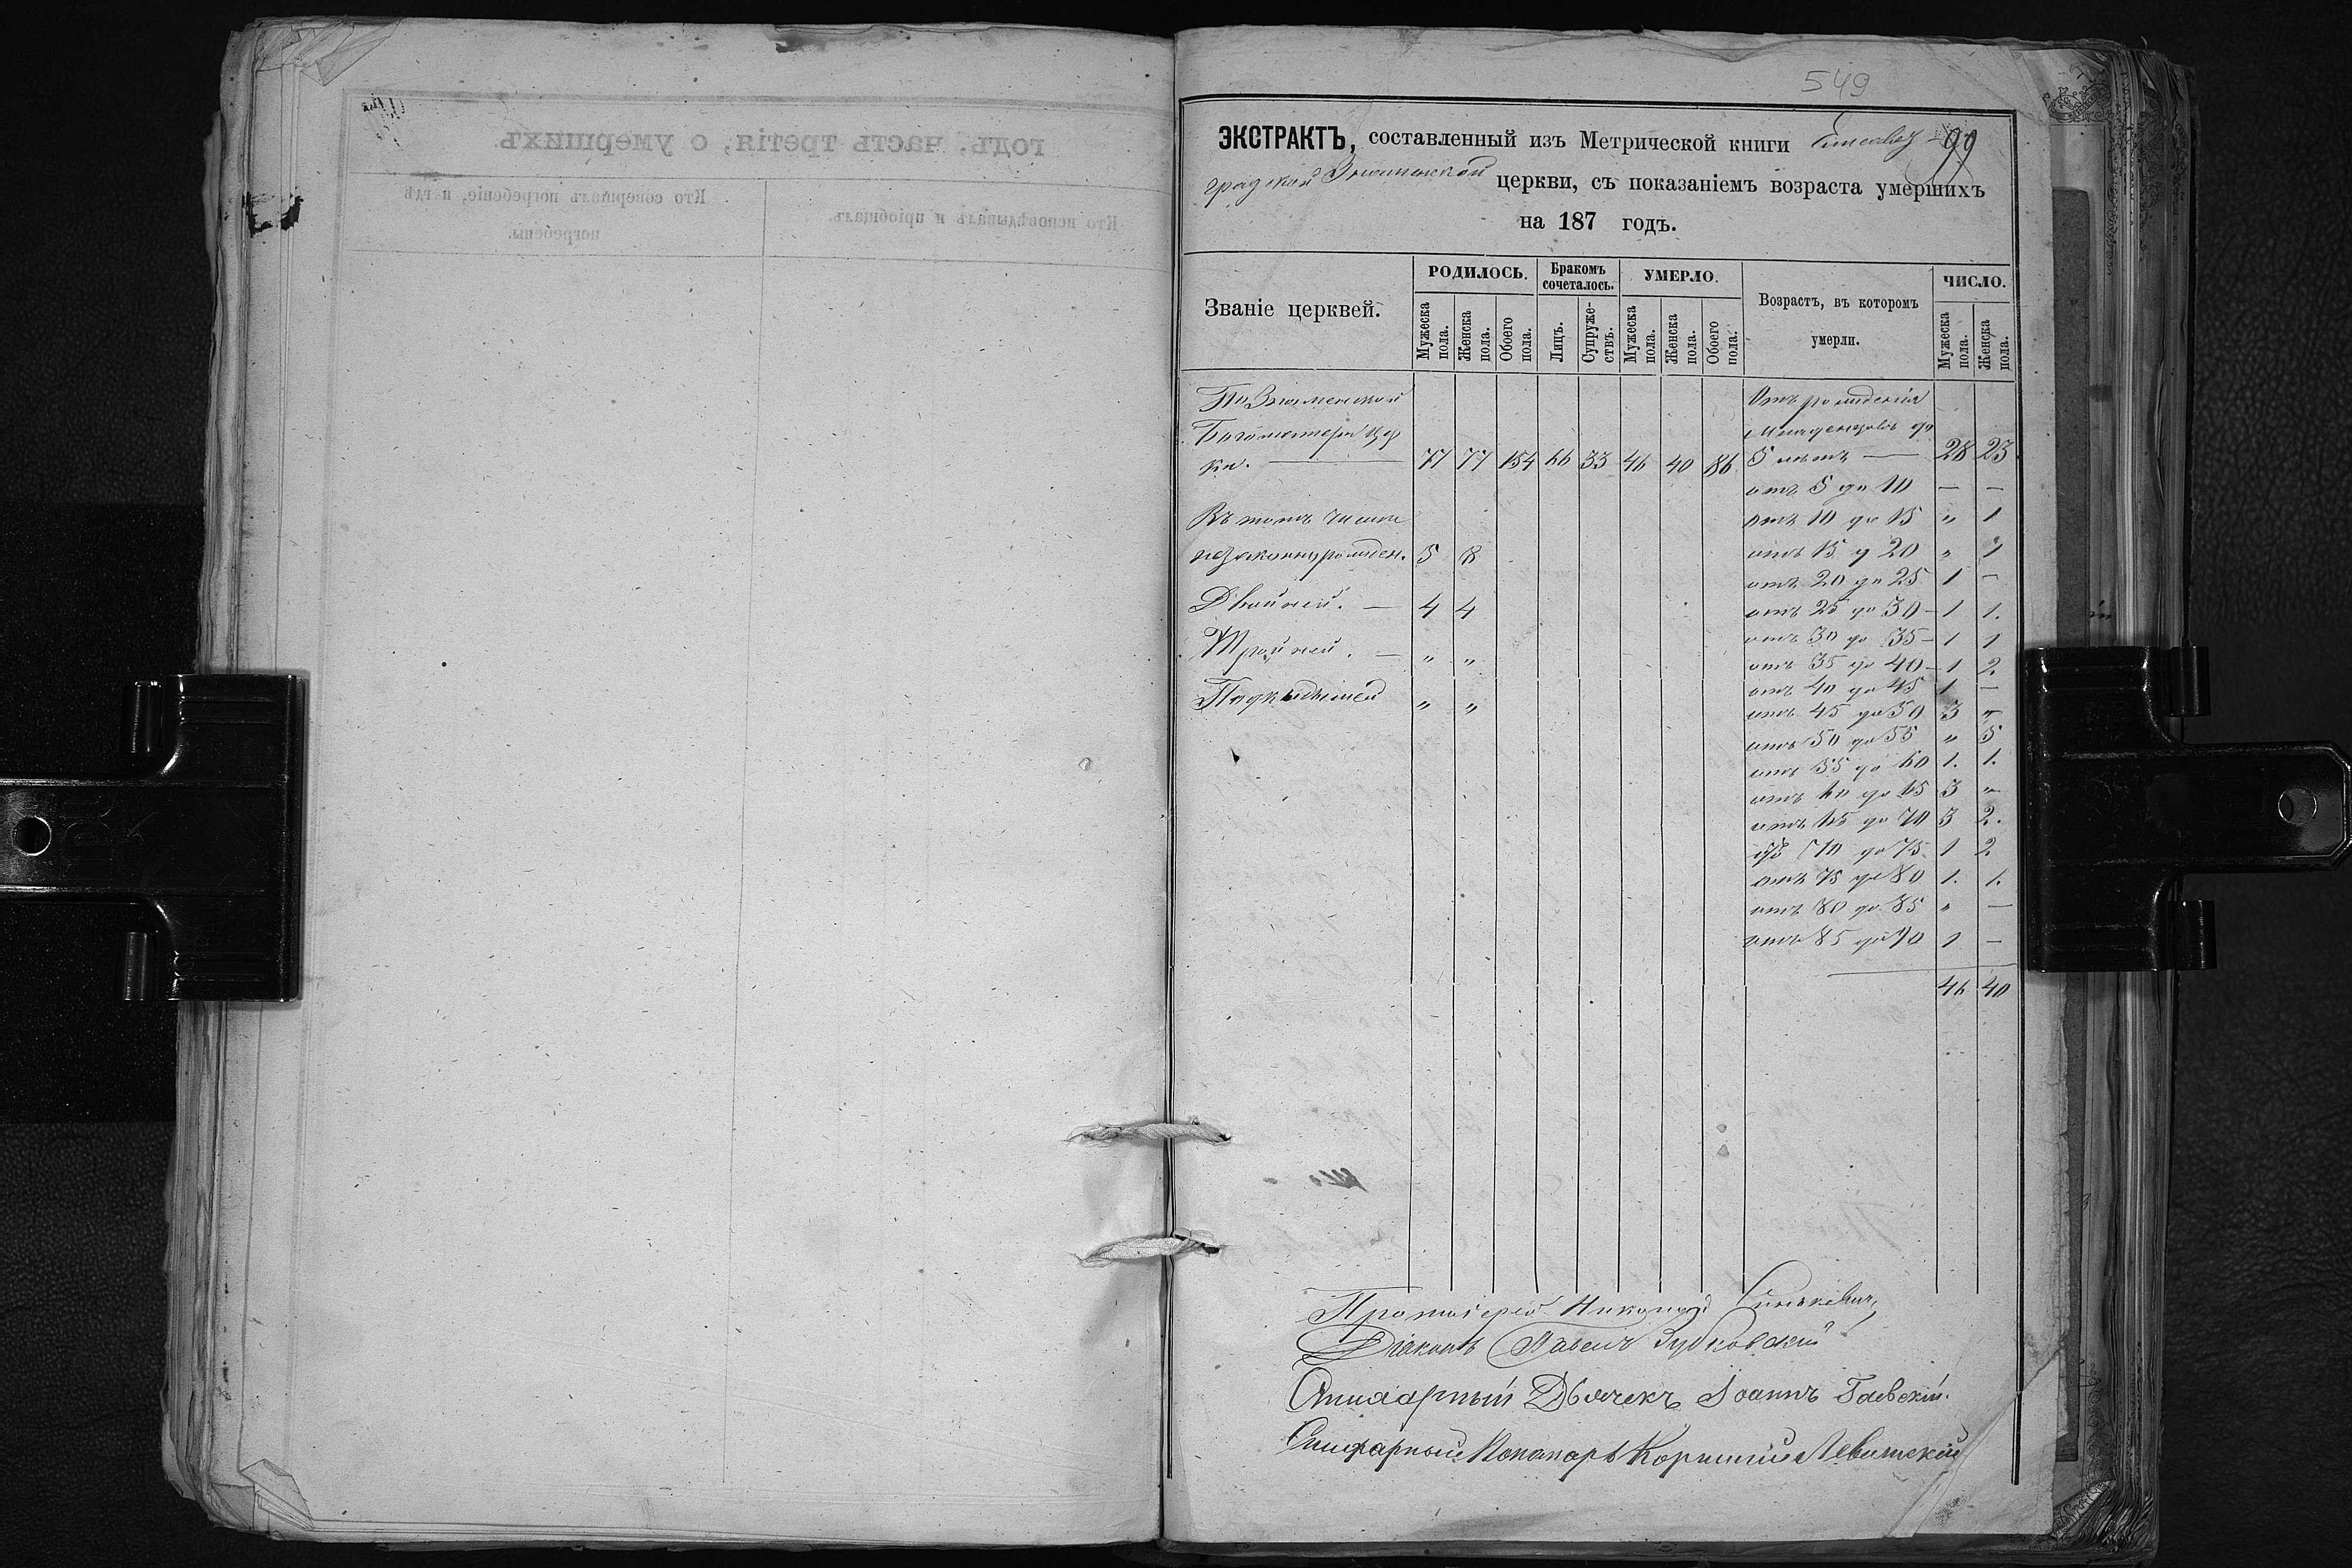 549
99
ЭКСТРАКТЪ, составленный изъ Метрической книги Елисавет-
градской Знаменской церкви, съ показаніемъ возраста умершихъ
на 187 годъ.
Званіе церквей. РОДИЛОСЬ. Бракомъ сочеталось. УМЕРЛО. Возрастъ, въ которомъ умерли. ЧИСЛО.
Мужеска пола. Женска пола. Обоего пола. Лицъ. Супружествъ. Мужеска пола. Женска пола. Обоего пола. Мужеска пола. Женска пола.
По Знаменской Отъ рожденія
Богоматери цер младенцовъ до
кви. — 77 77 154 66 33 46 40 86 5 лѣтъ — 28 23
отъ 5 до 10 — —
Въ томъ числѣ отъ 10 до 15 „ 1
незаконнорожден. 5 8 отъ 15 д 20 „ 1
отъ 20 до 25 1 —
Двойней. — 4 4 отъ 25 до 30 — 1 1.
отъ 30 до 35 — 1 1
Тройней. — „ „ отъ 35 до 40 — 1 2.
отъ 40 до 45 1 —
Подкидышей „ „ отъ 45 до 50 3 „
отъ 50 до 55 „ 5
отъ 55 до 60 1. 1.
отъ 60 до 65 3 „
отъ 65 до 70 3 2.
70 до 75 1 2
отъ 75 до 80 1. 1.
отъ 80 до 85 „ —
отъ 85 до 90 1 —
46 40
Протоіерей
Діаконъ Павелъ Зубковскій
Дьячекъ Іоаннъ Гаевскій.
Пономарь Корнилій Левитскій
годъ, часть третія, о умершихъ.
Кто исповѣдывалъ и пріобщалъ. Кто совершалъ погребеніе, и гдѣ погребены.